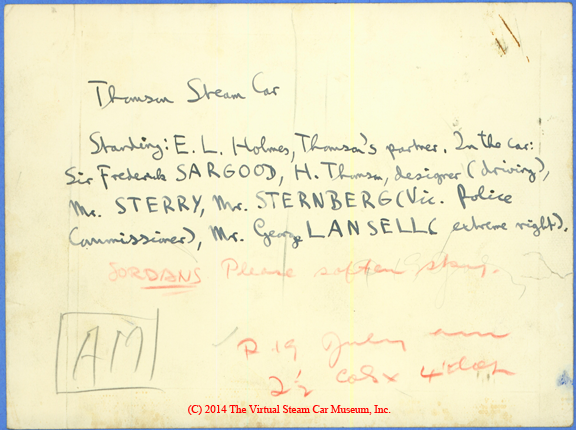 Thomson Steam Car
Standing: E. L. Holmes, Thomson's partner. In the car:
Sir Frederick SARGOOD, H. Thomson, designer (driving),
Mr. STERRY, Mr. STERNBERG (Vic. Police
Commissioner), Mr. George LANSELL (extreme right).
JORDANS Please soften
AM
P. 19 July
2½ cols x 4
(C) 2014 The Virtual Steam Car Museum, Inc.